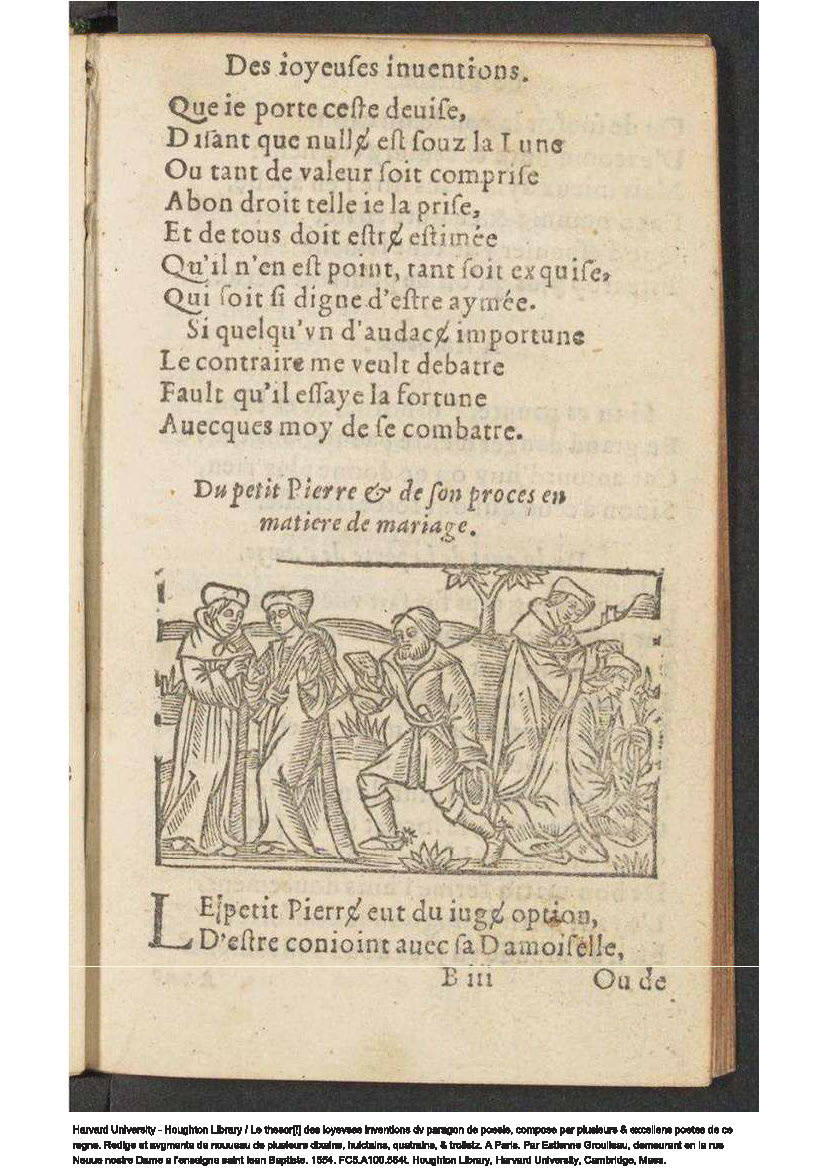 Des ioyeuſes inuentions.
Que ie porte ceſte deuiſe,
Diſant que nullé eſt ſouz la Lune
Ou tant de valeur ſoit compriſe
Abon droit telle ie la priſe,
Et de tous doit eſtré eſtimée
Qu'il n'en eſt point, tant ſoit exquiſe,
Qui ſoit ſi digne d'eſtre aymée.
Si quelqu'vn d'audacé importune
Le contraire me veult debatre
Fault qu'il eſſaye la fortune
Auecques moy de ſe combatre.
Du petit Pierre & de ſon proces en
matiere de mariage.
LE petit Pierré eut du iugé option,
D'eſtre conioint auec ſa Damoiſelle,
B iii Ou de
Harvard University - Houghton Library / Le thesor[!] des ioyevses inventions dv paragon de poesie, compose par plusieurs & excellens poetes de ce
regne. Redige et avgmente de nouueau de plusieurs dixains, huictains, quatrains, & trolietz. A Paris. Par Estienne Groulleau, demeurant en la rue
Neuue nostre Dame a l'enseigne saint Iean Baptiste. 1554. FC5.A100.554t. Houghton Library, Harvard University, Cambridge, Mass.